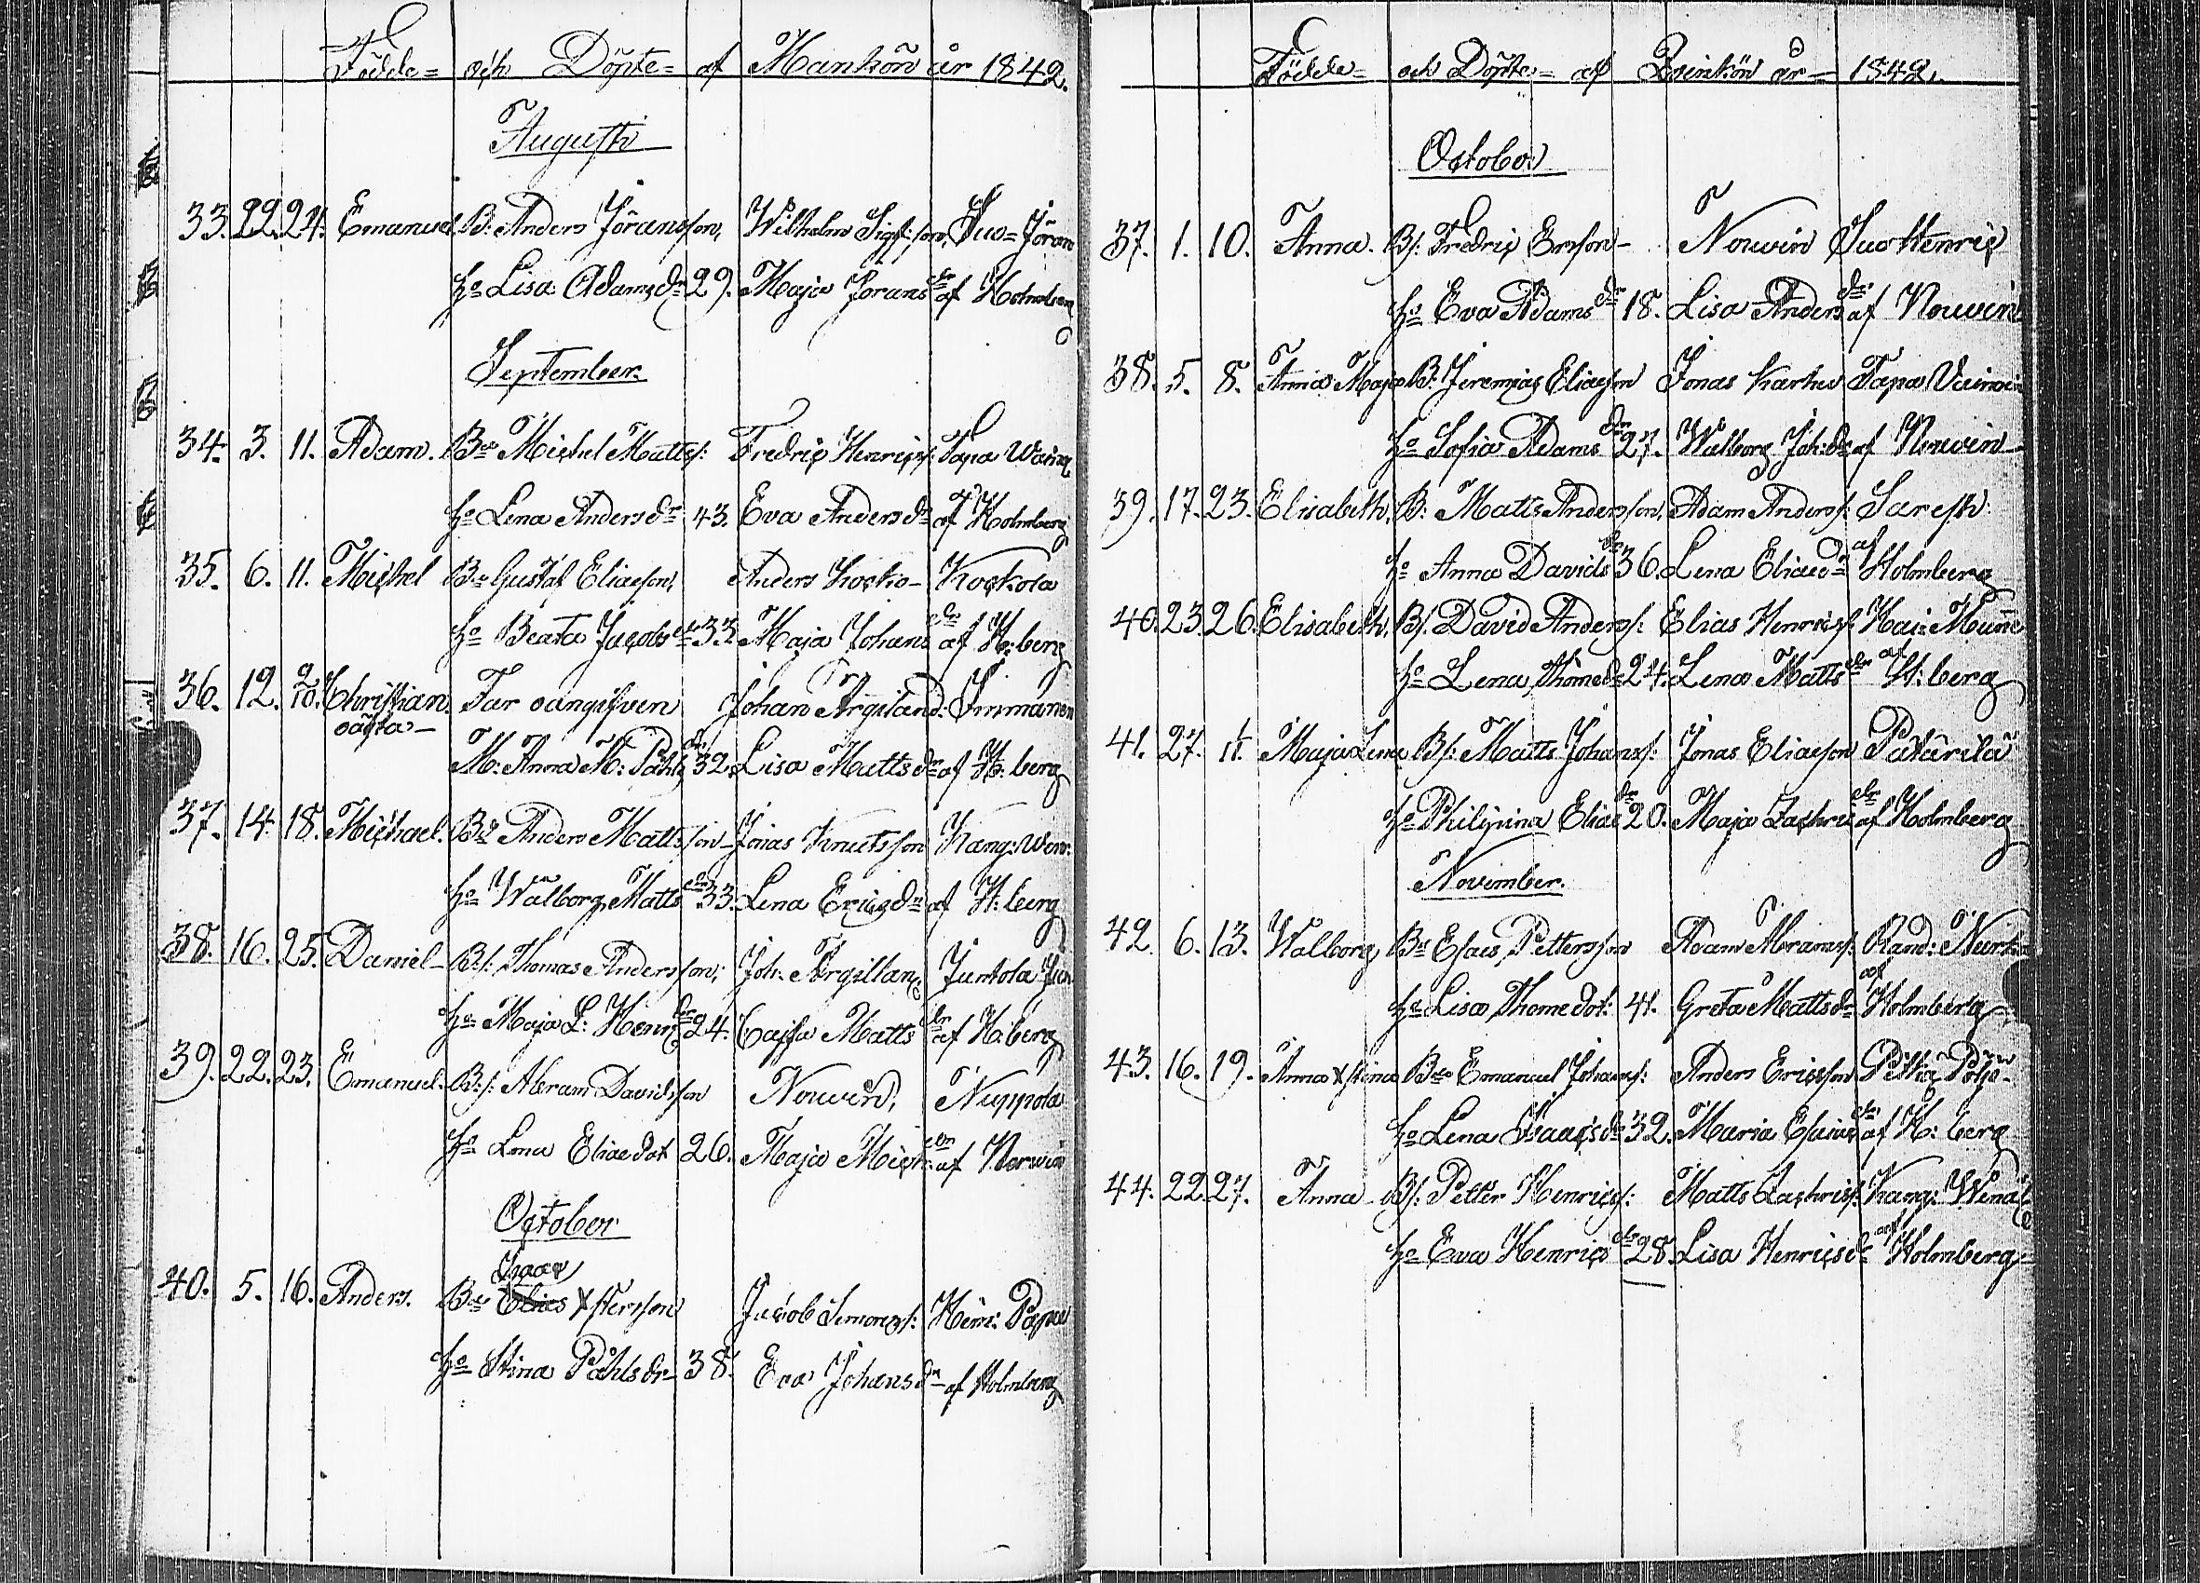 Födde= och Döpte= af Mankön år 1842.
Augusti
33. 22. 24. Emanuel B: Anders Jöransson, Wilhelm Sigfrson, Suo= Jöran
ho Lisa Adamsdr 29. Maja Jörans dr af Holmberg
September.
34. 3. 11. Adam. Bn Michel Mattss: Fredric Henricss: Papa
ho Lena Andersdr 43. Eva Andersdr af Holmberg
35. 6. 11. Michel Bn Gustaf Eliaeson, Anders Kosko– Koskola
ho Beata Jacobs dr 33. Maja Johans dr af H:berg
36. 12. Christian Far oangifven Johan Argiland: Immänen
oäkta–
M: Anna M: Påhls dr 32. Lisa Mattsdr af H:berg
37. 14. 18. Michael. Bn Anders Mattsson– Jonas Knutsson Kang:
ho Walborg Matts dr 33. Lena Ericsdr af H:berg
38. 16. 25. Daniel– Bs: Thomas Andersson; Joh: Argilland: Juntola
ho Maja L: Henr dr 24. Cajsa Matts dr af H:berg
39. 22. 23. Emanuel. B:s: Abram Davidsson Nouwin, Nuppola
ho Lena Eliaedot 26. Maja Mich: dr af Norwin
October
Isaac
40. 5. 16. Anders. Bn Elias Xstersson Jacob Simonss: Hein: Papu
ho Stina Påhlsdr 38. Eva Johansdr af Holmberg
Födde= och Döpte= af Qvinkön år– 1842.
October
37. 1. 10. Anna. Bs: Fredric Ersson– Nouwin Suo Henric
ho Eva Adams dr 18. Lisa Anders dr af Nouwin
38. 5. 8. Anna Maja B: Jeremias Eliaeson Jonas Karhu Papa
ho Sofia Adams dr 27. Walborg Joh:dr af Norwin
39. 17. 23. Elisabeth, B: Matts Andersson, Adam Anderss: Saresti:
ho Anna Davids dr 36. Lena Eliaedr af Holmberg
40. 23. 26. Elisabeth, Bs: David Anderss: Elias Henricss: Hai: Munne
ho Lena Thomedr 24. Lena Matts dr af H:berg
41. 27. Maja Lena Bs: Matts Johanss: Jonas Eliaeson Patärilä
ho Philipina Eliae dr 20. Maja Zachris dr af Holmberg
November.
42. 6. 13. Walborg Bn Esais Pettersson Adam Abramss: Rand:
ho Lisa Thomedot: 41. Greta Mattsdr af Holmberg
43. 16. 19. Anna Xstina Bn Emanuel Johanss: Anders Ericsson
ho Lena Isaacsdr 32. Maria Esaias dr af H:berg
44. 22. 27. Anna Bs: Petter Henricss: Matts Zachriss: Kang:
ho Eva Henrics dr 28. Lisa Henricsdr af Holmberg